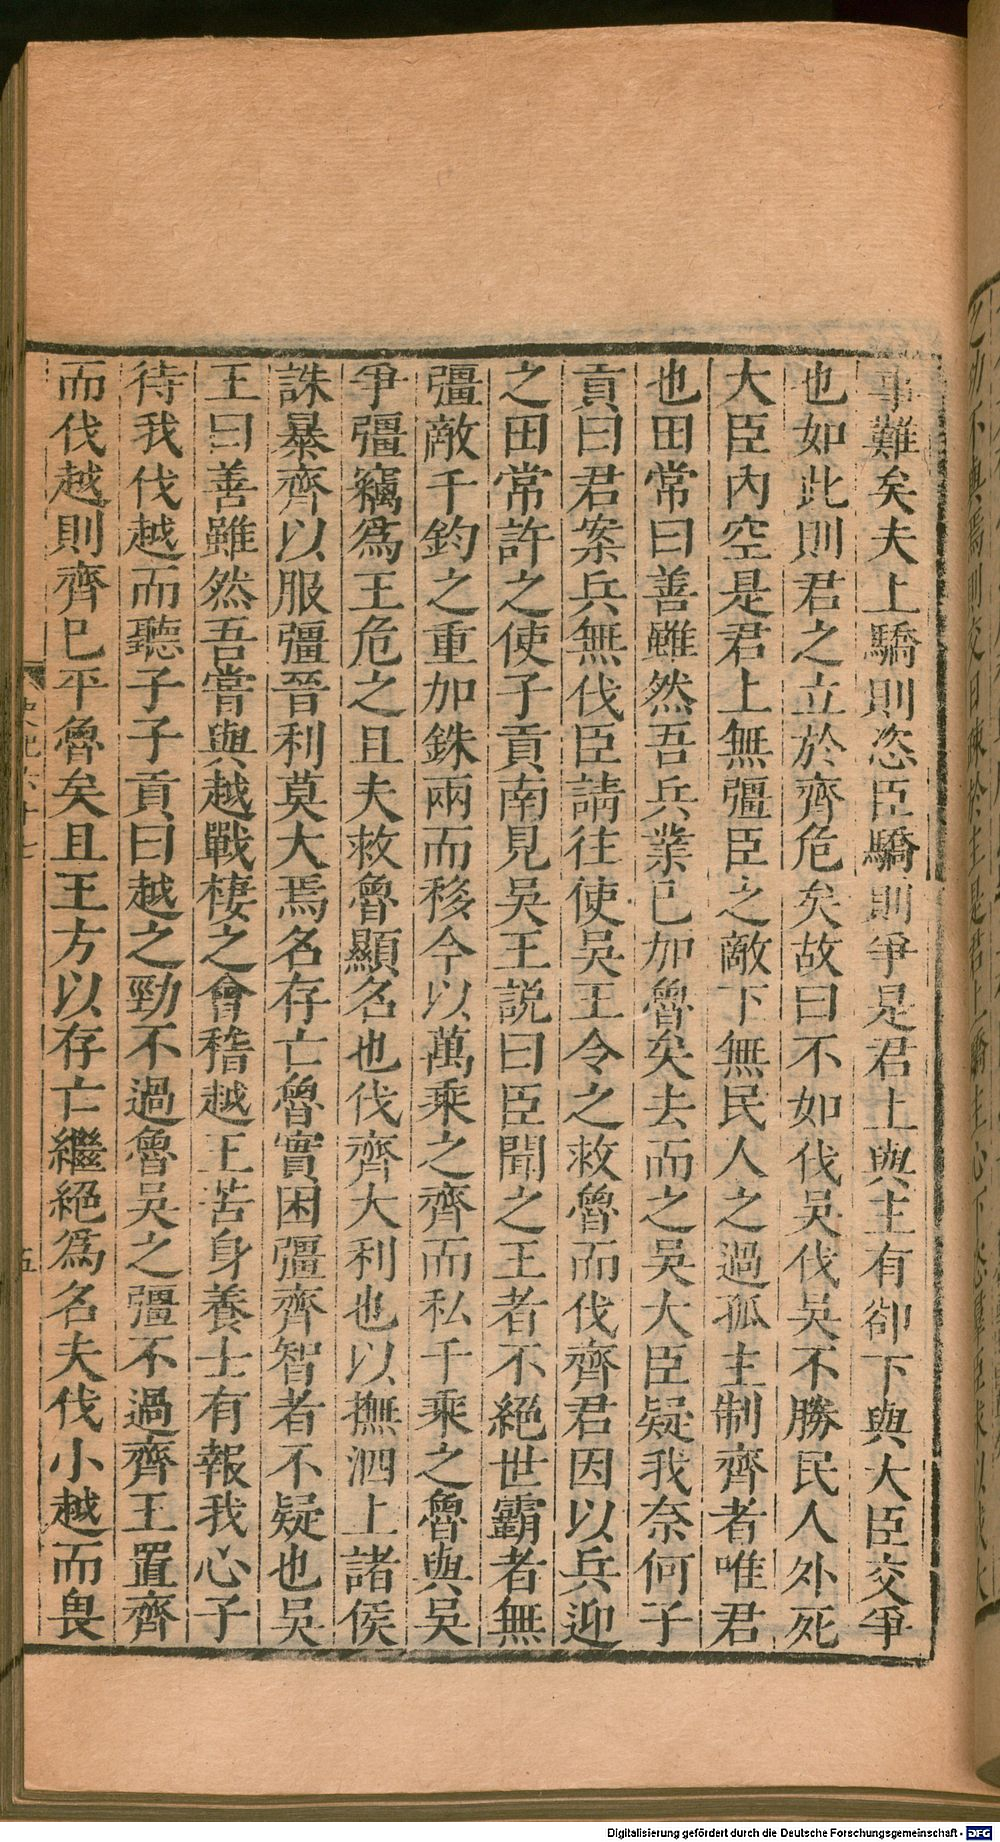 事難矣夫上驕則恣臣驕則爭是君上與主有卻下與大臣交爭
也如此則君之立於齊危矣故曰不如伐吳伐吳不勝民人外死
大臣內空是君上無彊臣之敵下無民人之過孤主制齊者唯君
也田常曰善雖然吾兵業已加魯矣去而之吳大臣疑我奈何子
貢曰君案兵無伐臣請往使吳王令之救魯而伐齊君因以兵迎
之田常許之使子貢南見吳王說曰臣聞之王者不絕世霸者無
彊敵千鈞之重加銖兩而移今以萬乘之齊而私千乘之魯與吳
爭彊竊爲王危之且夫救魯顯名也伐齊大利也以撫泗上諸侯
誅暴齊以服彊晉利莫大焉名存亡魯實困彊齊智者不疑也吳
王曰善雖然吾嘗與越戰棲之會稽越王苦身養士有報我心子
待我伐越而聽子子貢曰越之勁不過魯吳之彊不過齊王置齊
而伐越則齊已平魯矣且王方以存亡繼絕爲名夫伐小越而畏
五
Digitalisierung gefördert durch die Deutsche Forschungsgemeinschaft - DFG